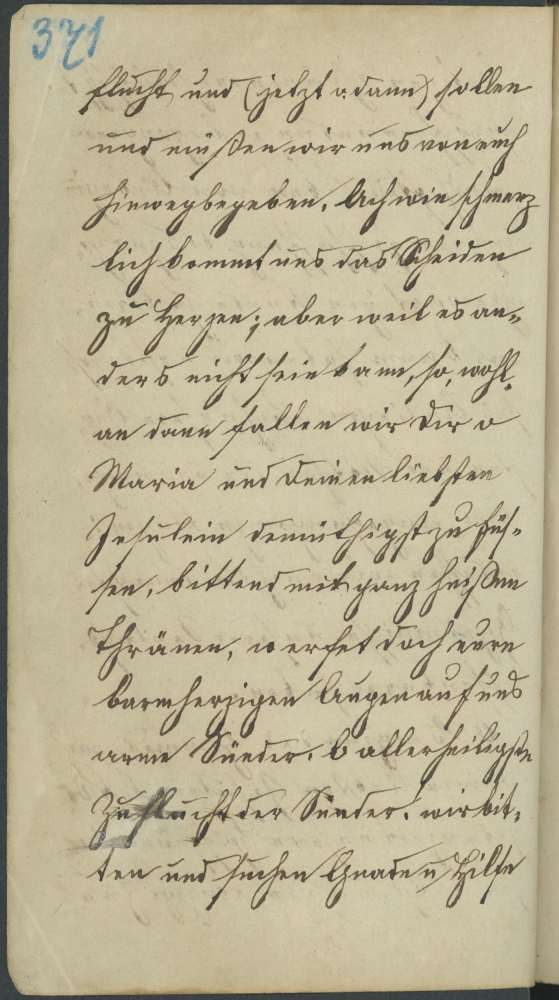 371
flucht und (jetzt o. dann) sollen
und müßen wir uns von euch
hinwegbegeben. Ach wie schmerz
lich kommt uns das Scheiden
zu Herzen; aber weil es an-
ders nicht sein kann, so, wohl-
an dann fallen wir Dir o
Maria und deinen liebsten
Jesulein demüthigst zu Füs-
sen, bittend mit ganz heißen
Thränen, werfet doch eure
barmherzigen Augen auf uns
arme Sünder. O allerheiligste
Zuflucht der Sünder! wir bit-
ten und suchen Gnade u Hilfe